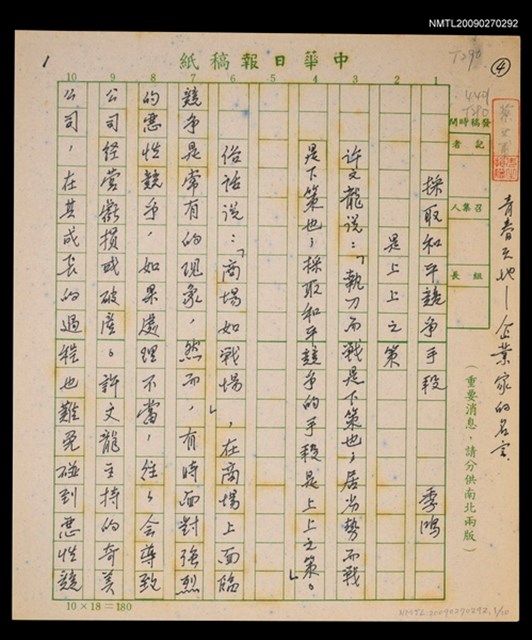 NMTL20090270292
中華日報稿紙
T290
④
449
T280
發稿時間
記者
召集人
組長
青春天地—企業家的名言
(重要消息,請分供南北兩版)
1
1 2 3 4 5 6 7 8 9 10
採取和平競争手段 季鴻
是上上之策
许文龍说:「執刀而戰是下策也,居劣势而戰
是下策也,採取和平競争的手段是上上之策。」
俗話说:「商場如战場」,在商場上面臨
競争是常有的现象,然而,有時面對強烈
的惡性競争,如果處理不當,往々会導致
公司经营虧損或破產。許文龍主持的奇美
公司,在其成長的過程也難免碰到惡性競
10×18=180
NMTL 20090270292, 1/10